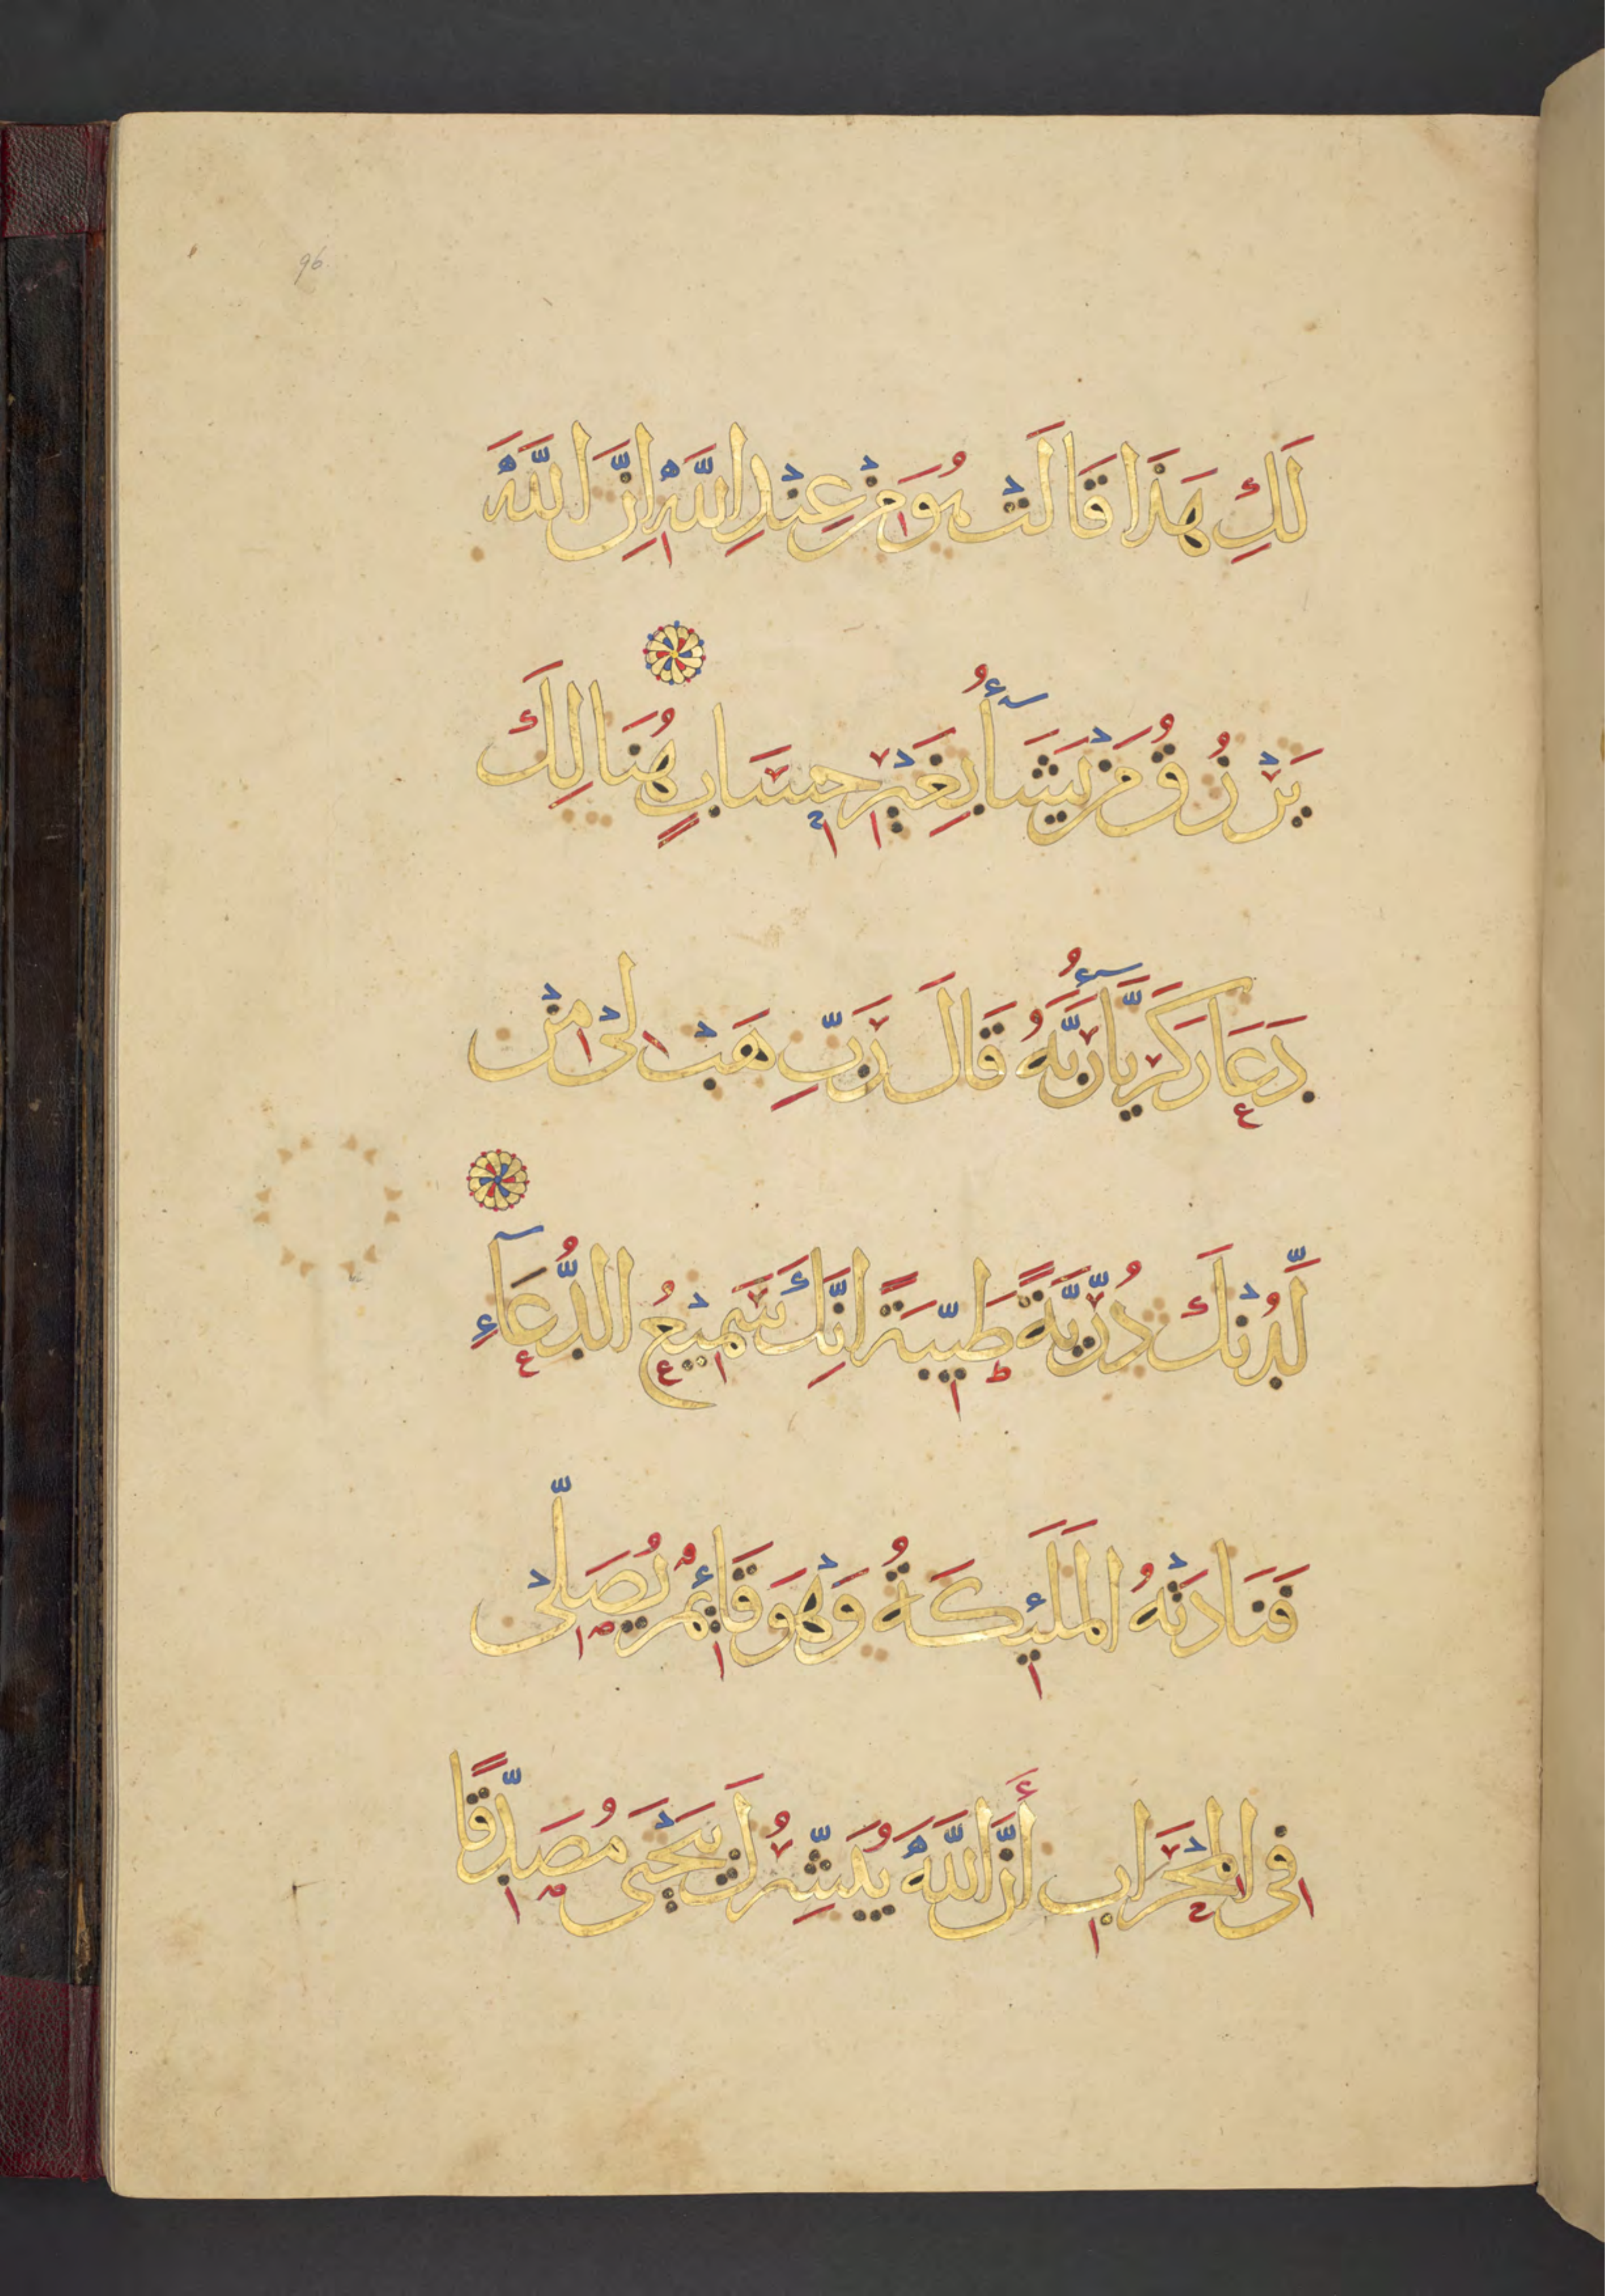 96
لَكِ هَذَا قَالَتْ هُوَ مِنْ عِنْدِ اللَّهِ إِنَّ اللَّهَ
يَرْزُقُ مَنْ يَشَآءُ بِغَيْرِ حِسَابٍ هُنَالِكَ
دَعَا زَكَرِيَّآءُ رَبَّهُ قَالَ رَبِّ هَبْ لِيْ مِنْ
لَّدُنْكَ ذُرِّيَّةً طَيِّبَةً إِنَّكَ سَمِيْعُ الدُّعَآءِ
فَنَادَتْهُ الْمَلَئِكَةُ وَهْوَ قَائِمٌ يُصَلِّيْ
فِي الْمِحْرَابِ أَنَّ اللَّهَ يُبَشِّرُكَ بِيَحْيَى مُصَدِّقًا